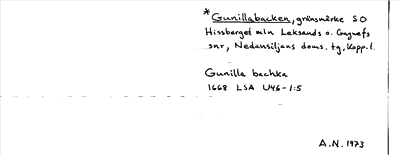 *Gunillabacken, gränsmärke SO
Hissberget mln Leksands o. Gagnefs
snr, Nedansiljans doms. tg, Kopp. l.
Gunilla bachka
1668 LSA U46-1:5
A.N. 1973